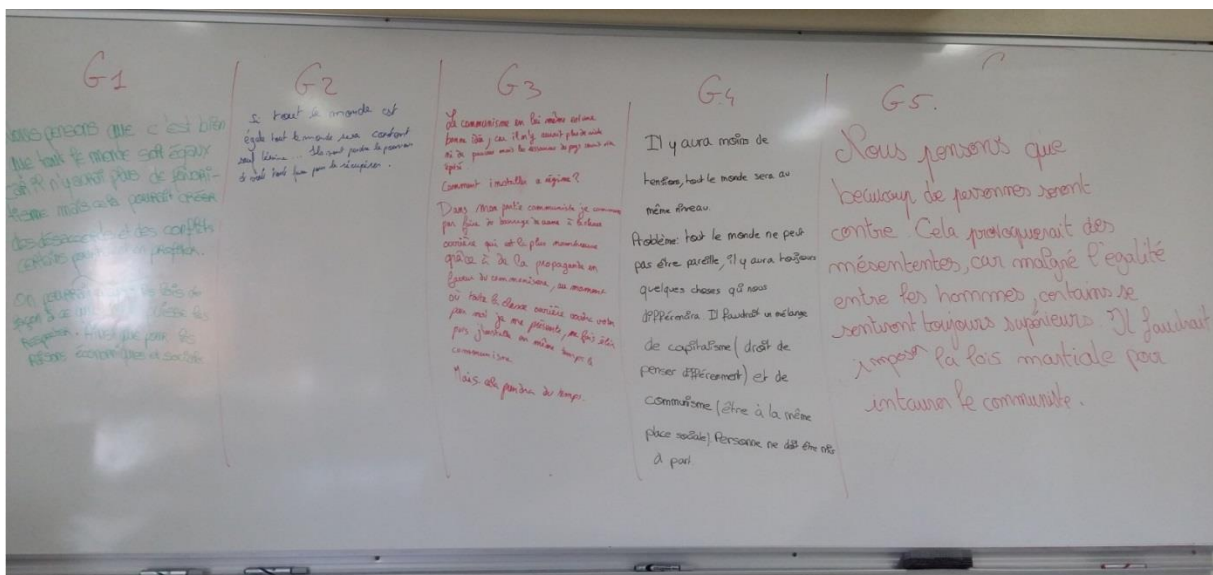 G1
Nous pensons que c'est bien
que tout le monde soit égaux
car il n'y aurait plus de favori-
tisme mais cela pourrait créer
des désaccords et des conflits
certaines
On pourrait lois de
façon à ce que les
respecter. Ainsi que pour les
raisons économiques et sociales
G2
Si tout le monde est
égale tout le monde sera content
sauf Lénine... Ils vont perdre le pouvoir
et vont tout faire pour le récupérer.
G3
Le communisme en lui même est une
bonne idée, car il n'y aurait plus de riche
ni de pauvres mais les du pays vont vite
Comment installer ce régime?
Dans mon parti communiste je commence
par faire du bourrage de crane à la classe
ouvrière qui est la plus nombreuse
grâce à de la propagande en
faveur du communisme, au moment
où toute la classe ouvrière votera
pour moi je me présente, me fais élire
puis j'installe en même temps le
communisme.
Mais cela prendra du temps.
G4
Il y aura moins de
tensions, tout le monde sera au
même niveau.
Problème: tout le monde ne peut
pas être pareille, il y aura toujours
quelques choses qui nous
différencira. Il faudrait un mélange
de capitalisme (droit de
penser différemment) et de
communisme (être à la même
place sociale). Personne ne doit être mis
à part.
G5.
Nous pensons que
beaucoup de personnes seront
contre. Cela provoquerait des
mésententes, car malgré l'égalité
entre les hommes, certains se
sentiront toujours supérieurs. Il faudrait
imposer la lois martiale pour
intaurer le communiste.